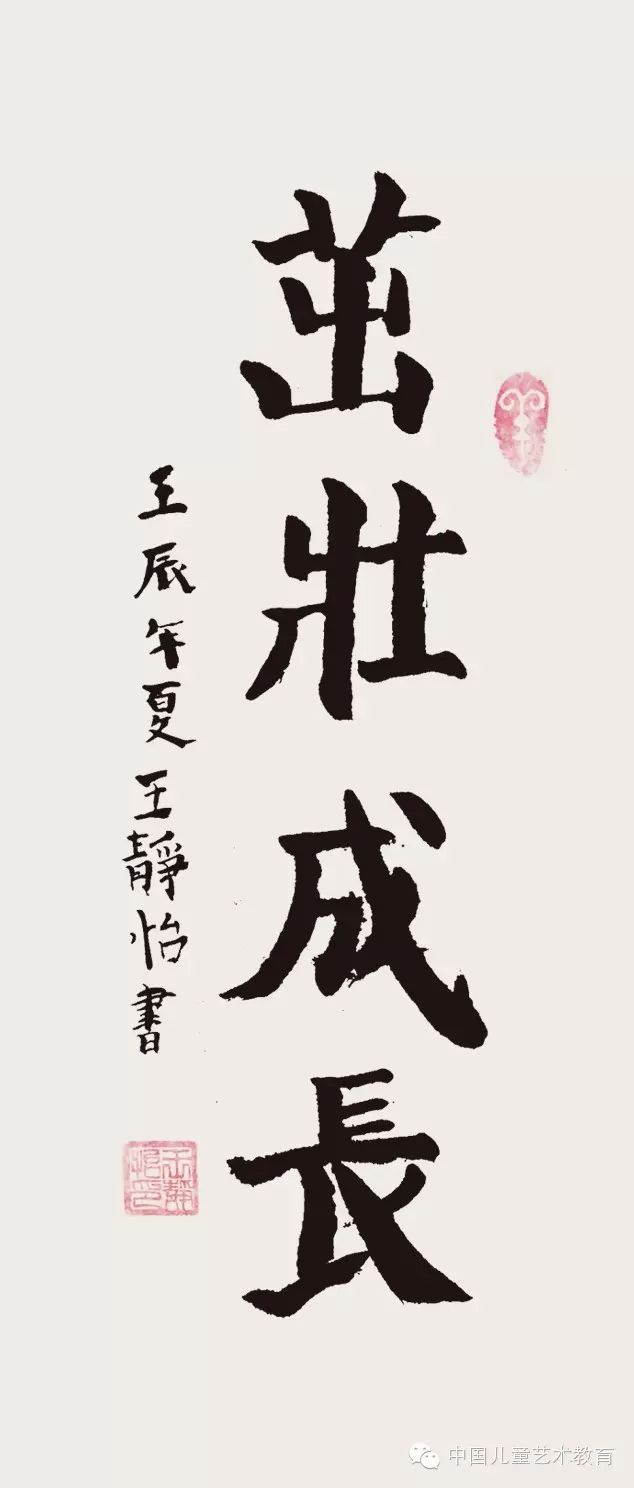 茁壯成長
壬辰年夏王靜怡書
王靜怡印
中国儿童艺术教育